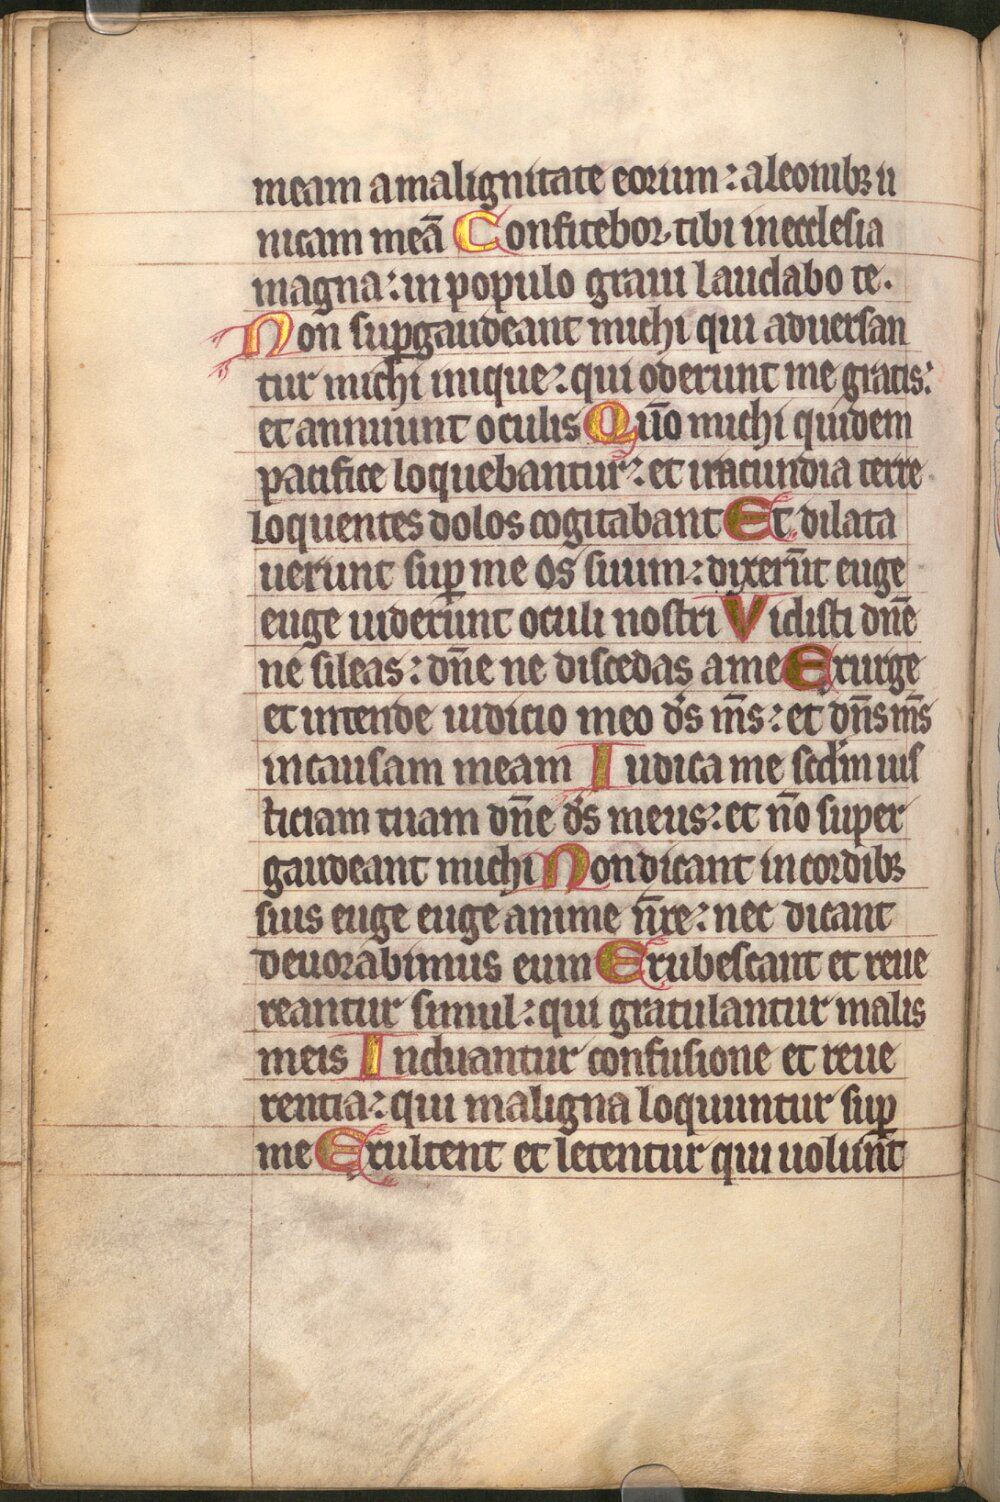 meam a malignitate eorum: a leonibꝫ u
nicam meā Confitebor tibi in ecclesia
magna: in populo graui laudabo te.
Non suꝑgaudeant michi qui aduersan
tur michi inique: qui oderunt me gratis:
et annuunt oculis Qūo michi quidem
pacifice loquebantur: et iracundia terre
loquentes dolos cogitabant Et dilata
uerunt suꝑ me os suum: dixerūt euge
euge uiderunt oculi nostri Vidisti dn̄e
ne sileas: dn̄e ne discedas a me Exurge
et intende iudicio meo ds̄ ms̄: et dn̄s ms̄
in causam meam Iudica me scdm̄ ius
ticiam tuam dn̄e ds̄ meus: et nō super
gaudeant michi Non dicant in cordibꝫ
suis euge euge anime nr̄e: nec dicant
deuorabimus eum Erubescant et reue
reantur simul: qui gratulantur malis
meis Induantur confusione et reue
rentia: qui maligna loquuntur suꝑ
me Exultent et letentur qui uolunt